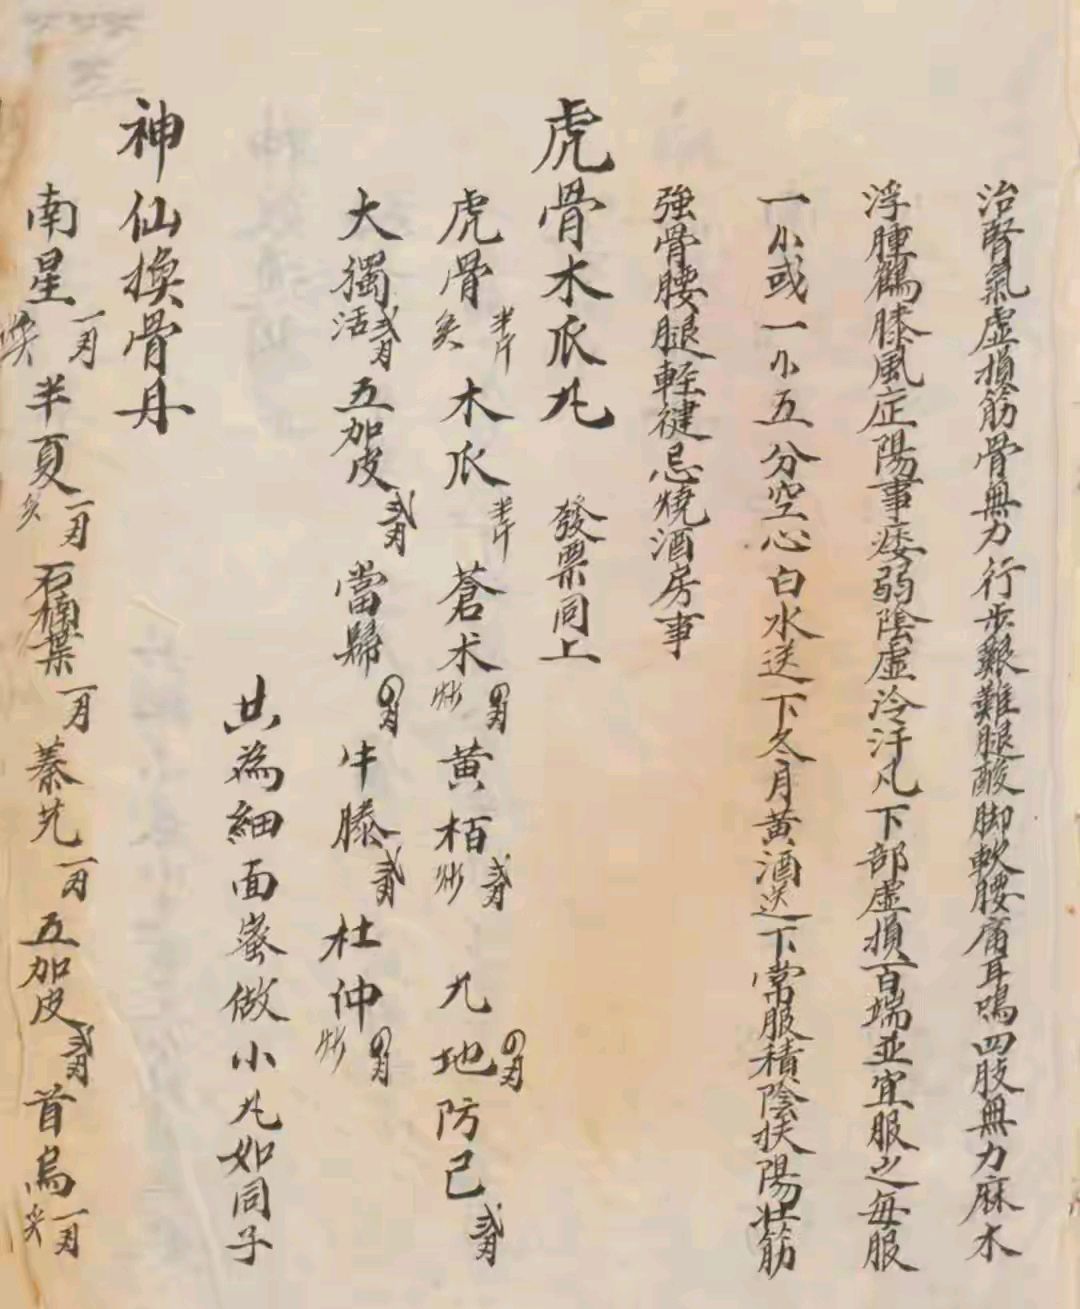 治腎氣虛損筋骨無力行步艱難腿酸脚軟腰痛耳鳴四肢無力麻木
浮腫鶴膝風症陽事痿弱陰虛冷汗凡下部虛損百端並宜服之每服
一小或一小五分空心白水送下冬月黄酒送下常服積陰扶陽壯筋
強骨腰腿輕健忌燒酒房事
虎骨木瓜丸 發票同上
虎骨炙半斤 木瓜半斤 蒼术炒四両 黄栢炒弍両 九地四両 防已弍両
大獨活弍両 五加皮弍両 當歸四両 牛膝弍両 杜仲炒四両
共為細面蜜做小丸如同子
神仙換骨丹
南星一両 半夏炙一両 石楠葉一両 蓁艽一両 五加皮弍両 首烏一両